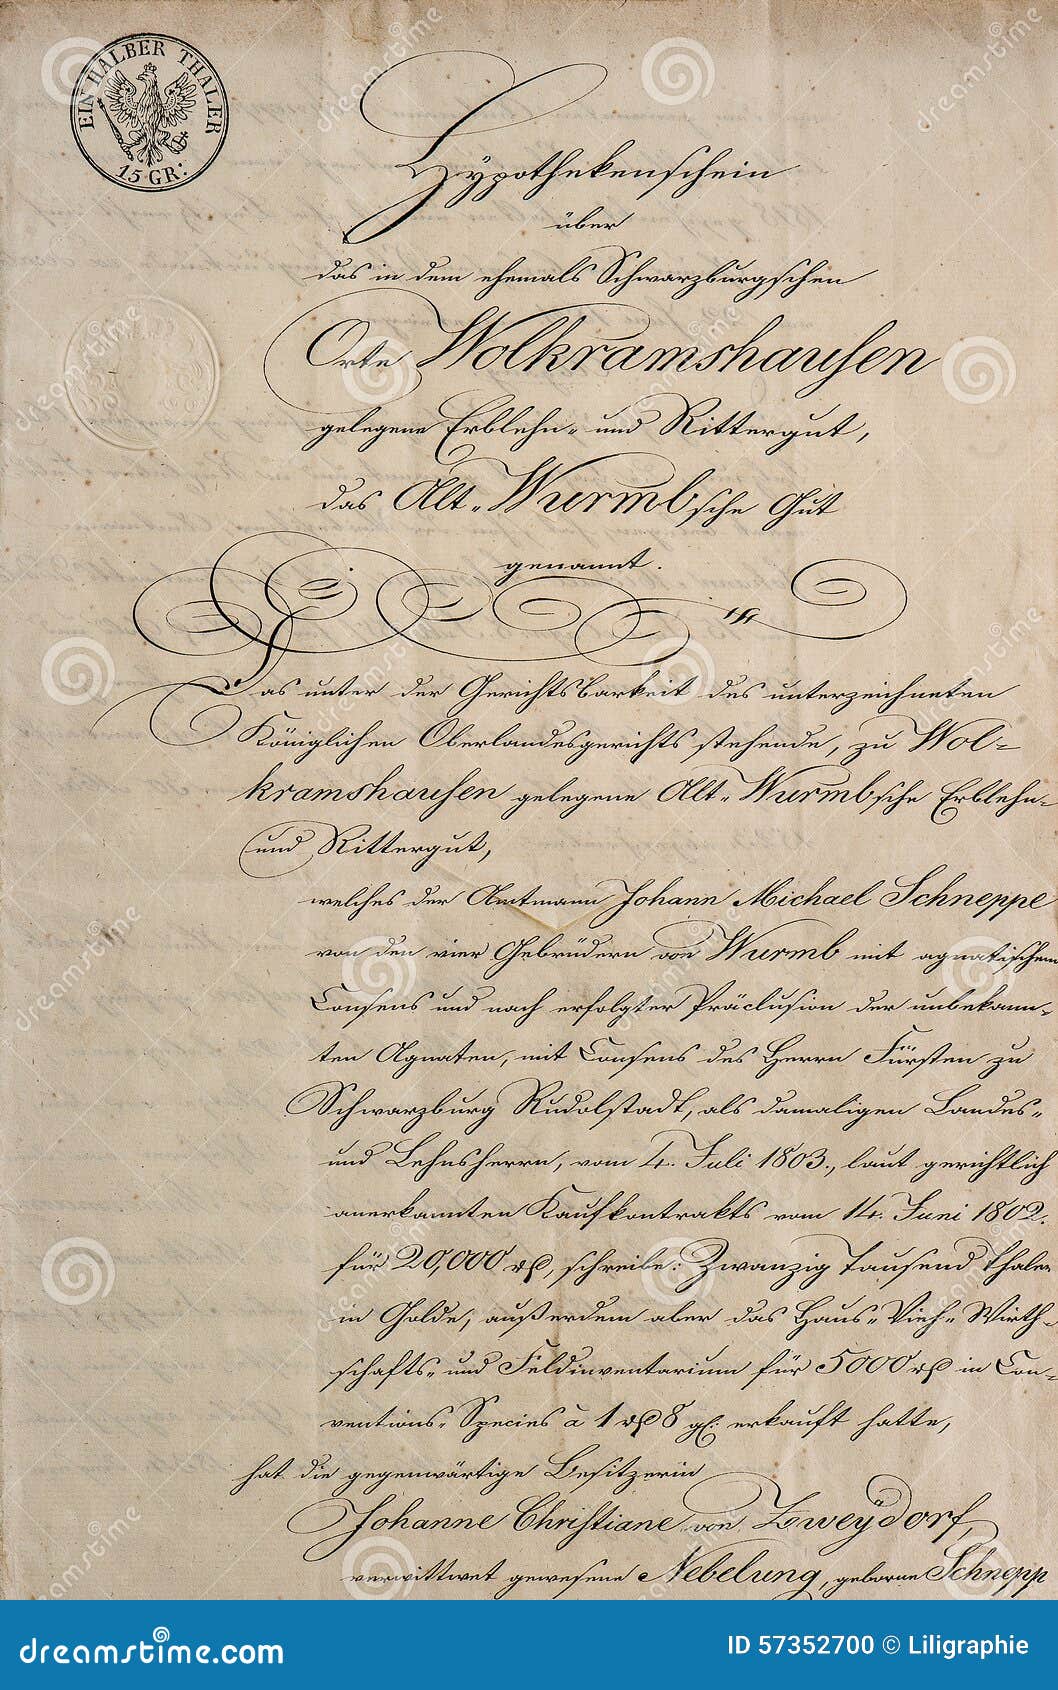 EIN HALBER THALER
15 GR:
Hypothekenschein
über
das in dem ehemals Schwarzburgschen
Orte Wolkramshausen
gelegene Erblehn- und Rittergut,
das Alt-Wurmbsche Gut
genannt.
Das unter der Gerichtsbarkeit des unterzeichneten
Königlichen Oberlandesgerichts stehende, zu Wol-
kramshausen gelegene Alt-Wurmbsche Erblehn-
und Rittergut,
welches der Amtmann Johann Michael Schneppe
von den vier Gebrüdern von Wurmb mit agnatischem
Consens und nach erfolgter Präclusion der unbekann-
ten Agnaten, mit Consens des Herrn Fürsten zu
Schwarzburg Rudolstadt, als damaligen Landes-
und Lehnsherrn, vom 4. Juli 1803., laut gerichtlich
anerkannten Kaufkontrakts vom 14. Juni 1802.
für 20,000 rℓ, schreibe: Zwanzig Tausend Thaler
in Golde, außerdem aber das Haus- Vieh- Wirth-
schafts- und Feldinventarium für 5000 rℓ in Con-
ventions-Species à 1 rℓ 8 gl: erkauft hatte,
hat die gegenwärtige Besitzerin
Johanne Christiane von Zweydorf,
verwittwet gewesene Nebelung, geborne Schnepp
dreamstime.com
ID 57352700 © Liligraphie